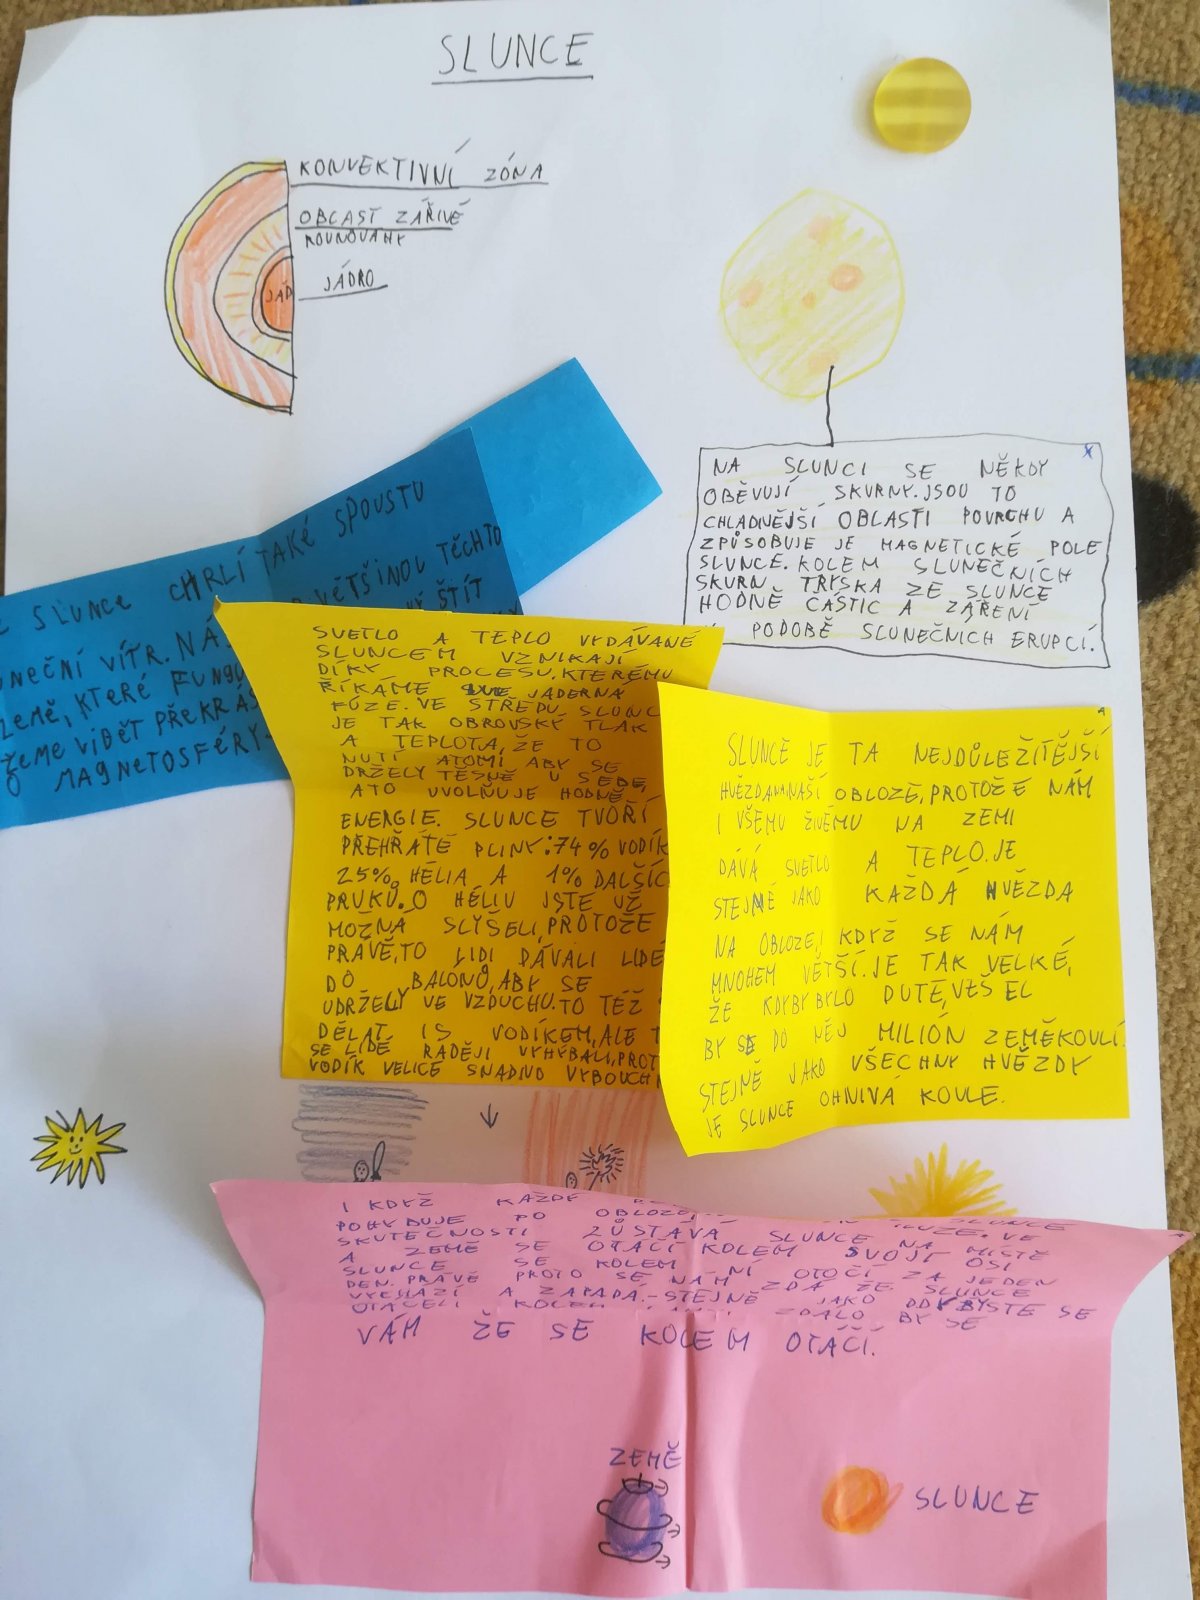 SLUNCE
KONVEKTIVNÍ ZÓNA
OBLAST ZÁŘIVÉ
ROVNOVAHY
JÁDRO
JÁD
NA SLUNCI SE NĚKDY
OBĚVUJÍ SKVRNY. JSOU TO
CHLADNĚJŠÍ OBLASTI POVRCHU A
ZPŮSOBUJE JE MAGNETICKÉ POLE
SLUNCE. KOLEM SLUNEČNÍCH
SKVRN TRYSKA ZE SLUNCE
HODNĚ ČÁSTIC A ZÁŘENÍ
PODOBĚ SLUNEČNICH ERUPCÍ.
SLUNCE CHRLÍ TAKÉ SPOUSTU
VĚTŠINOU TĚCHTO
ŠTÍT
VÍTR. NÁ
ZEMĚ, KTERÉ FUNGU
VIDĚT PŘEKRÁS
MAGNETOSFÉRY
SVETLO A TEPLO VYDÁVANÉ
SLUNCEM VZNIKAJÍ
DÍKY PROCESU, KTERÉMU
ŘÍKÁME JADERNÁ
FÚZE. VE STŘEDU SLUNC
JE TAK OBROVSKÝ TLAK
A TEPLOTA, ŽE TO
NUTÍ ATOMI ABY SE
DRŽELY TĚSNĚ U SEBE,
ATO UVOLŇUJE HODNĚ
ENERGIE. SLUNCE TVOŘÍ
PŘEHŘÁTÉ PLINY: 74% VODÍK
25% HÉLIA A 1% DALŠÍC
PRVKŮ. O HÉLIU JSTE UŽ
MOŽNÁ SLYŠELI, PROTOŽE
PRÁVĚ, TO LIDI DÁVALI LIDÉ
DO BALONŮ, ABY SE
UDRŽELY VE VZDUCHU. TO TÉŽ
DĚLAT IS VODÍKEM, ALE T
SE LIDÉ RADĚJI VYHÝBALI, PROT
VODÍK VELICE SNADNO VYBOUCH
SLUNCE JE TA NEJDŮLEŽITĚJŠÍ
HVĚZDA NA NAŠÍ OBLOZE, PROTOŽE NÁM
I VŠEMU ŽIVÉMU NA ZEMI
DÁVÁ SVETLO A TEPLO. JE
STEJNĚ JAKO KAŽDÁ HVĚZDA
NA OBLOZE, I KDYŽ SE NÁM
MNOHEM VĚTŠÍ. JE TAK VELKÉ,
ŽE KDYBY BYLO DUTÉ, VEŠEL
BY SE DO NĚJ MILIÓN ZEMĚKOULÍ.
STEJNĚ JAKO VŠECHNY HVĚZDY
JE SLUNCE OHNIVÁ KOULE.
I KDYŽ KAŽDÉ
POHYBUJE PO OBLOZE, SLUNCE
SKUTEČNOSTI ZŮSTÁVÁ SLUNCE NA MÍSTĚ
A ZEMĚ SE OTÁČÍ KOLEM SVOJÍ OSI
SLUNCE SE KOLEM NÍ OTOČÍ ZA JEDEN
DEN. PRÁVĚ PROTO SE NÁM ZDÁ ŽE SLUNCE
VYCHÁZÍ A ZAPADÁ, STEJNĚ JAKO
OTÁČELI KOLEM ZDÁLO BY SE
VÁM ŽE SE KOLEM OTÁČÍ.
ZEMĚ
SLUNCE